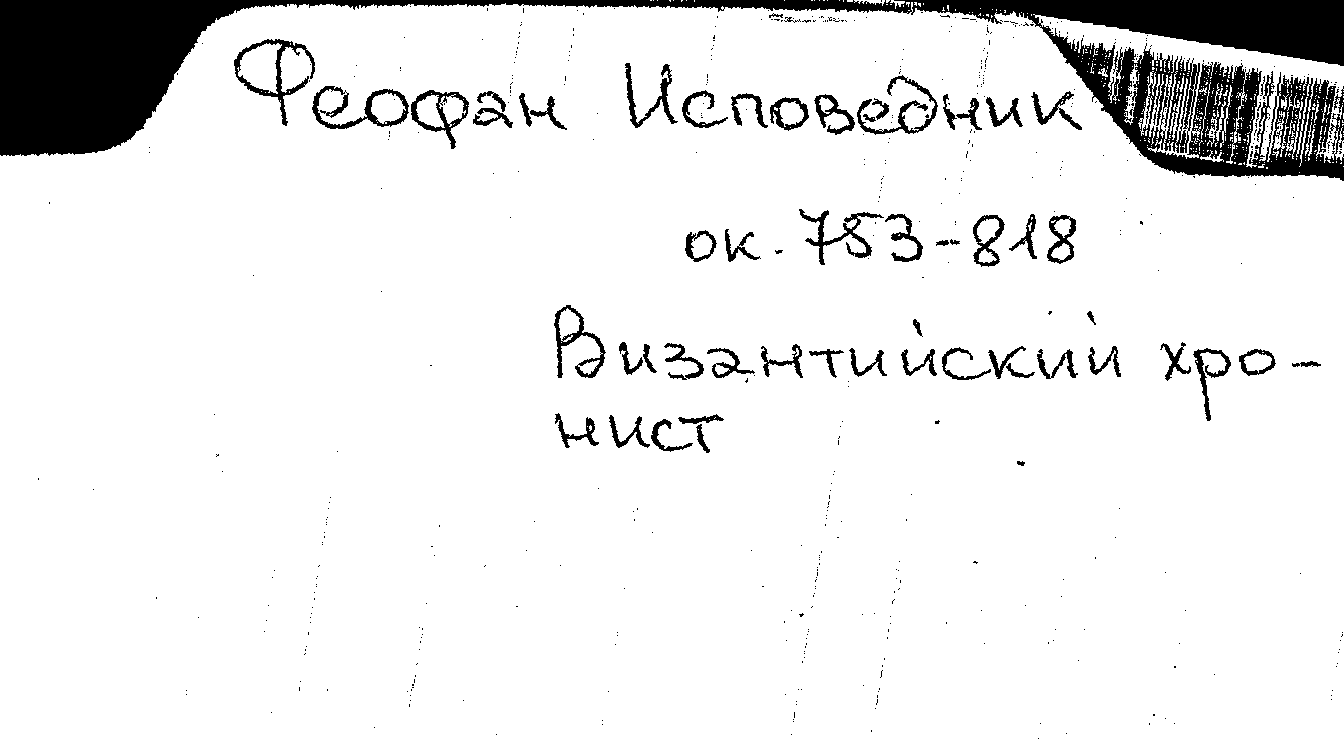 Феофан Исповедник
ок. 753-818
Византийский хро-
нист